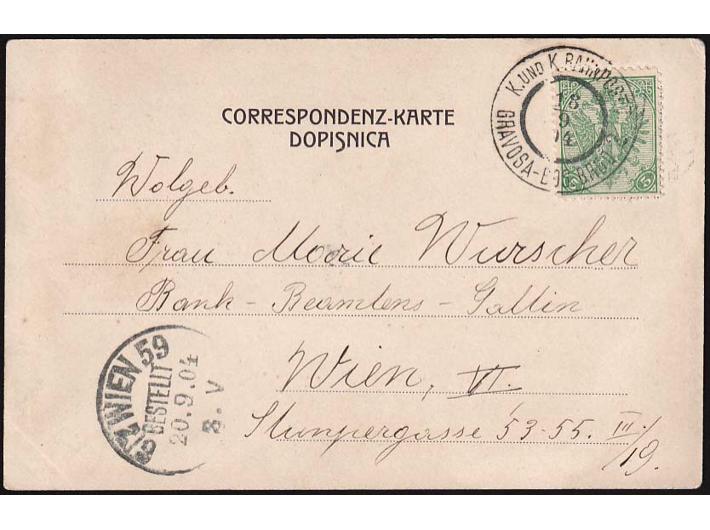 CORRESPONDENZ-KARTE
DOPISNICA
K. UND K. 
18
9
04
GRAVOSA-
5 5
Wolgeb.
Frau Marie Wurscher
Bank - Beamtens - Gattin
Wien, VI.
Stumpergasse 53-55. III./19.
WIEN 59
BESTELLT
20.9.04
8. V